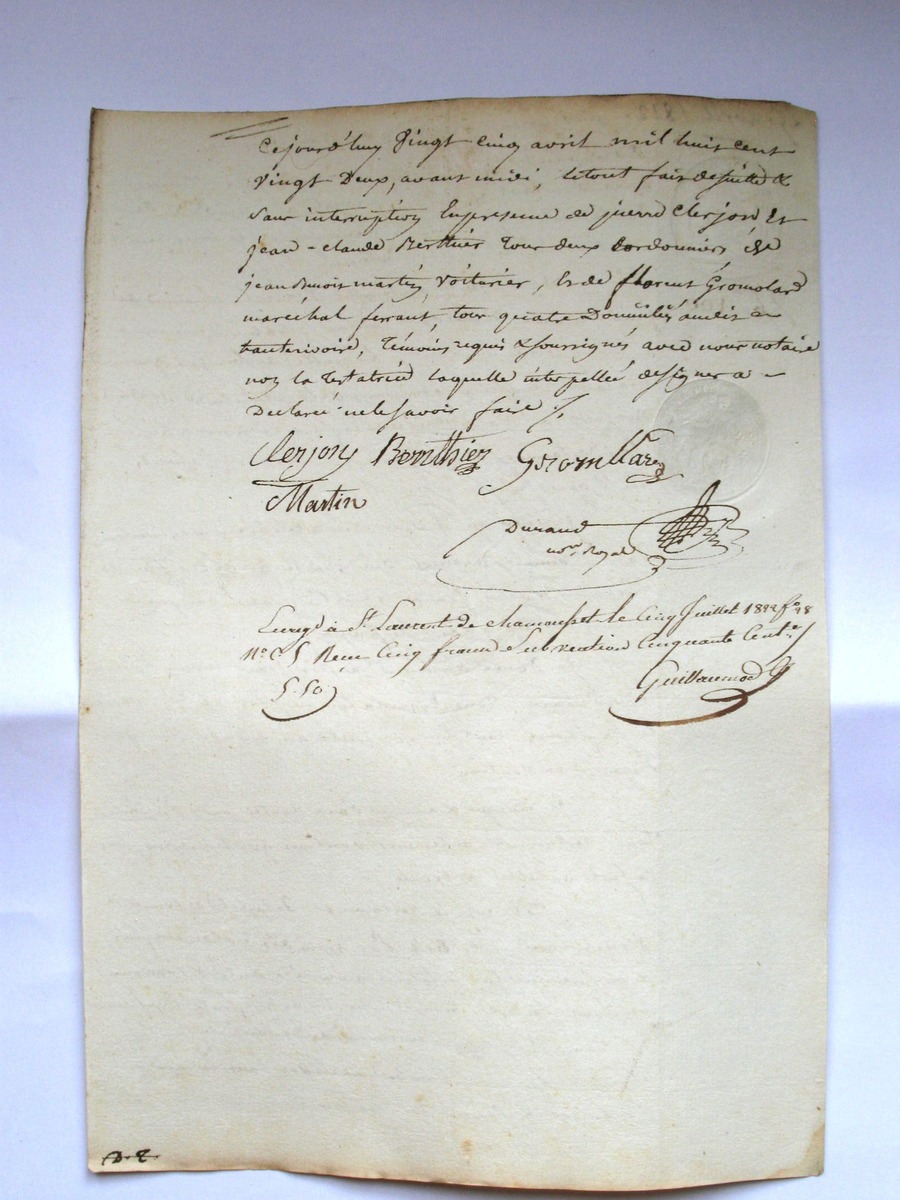 Cejourd'huy Vingt Cinq avril mil huit cent
Vingt Deux, avant midi, letout fait desuitte &
Sans interruption Enpresence de pierre Clerjon Et
jean-claude Berthier Tous deux Cordonniers, &
jean Benoit martin Voiturier, Et de florent Gromolard
maréchal ferrant, tous quatre Domiciliés audit
hauterivoire, Témoins requis & soussignés avec nous notaire
non la Testatrice laquelle interpellée designer a
Declaré nelesavoir faire
Clerjon Berrthier Gromllard
Martin
Durand
not. Royal
Enregé à St. Laurent de chamousset le Cinq Juillet 1822 fo. 98
Reçu Cinq francs Subvention Cinquante Cent.
5.50
Guillaumod